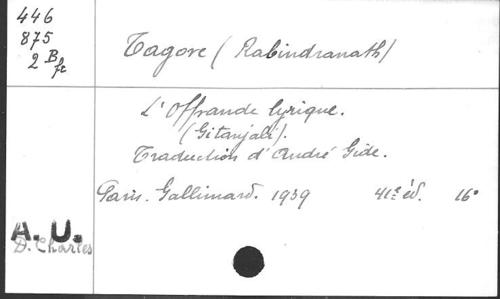 446
875
2 B
fr
Tagore (Rabindranath)
L'Offrande lyrique.
(Gitanjali).
Traduction d'André Gide.
Paris. Gallimard. 1939 41e éd. 16°
A. U.
D. Charles